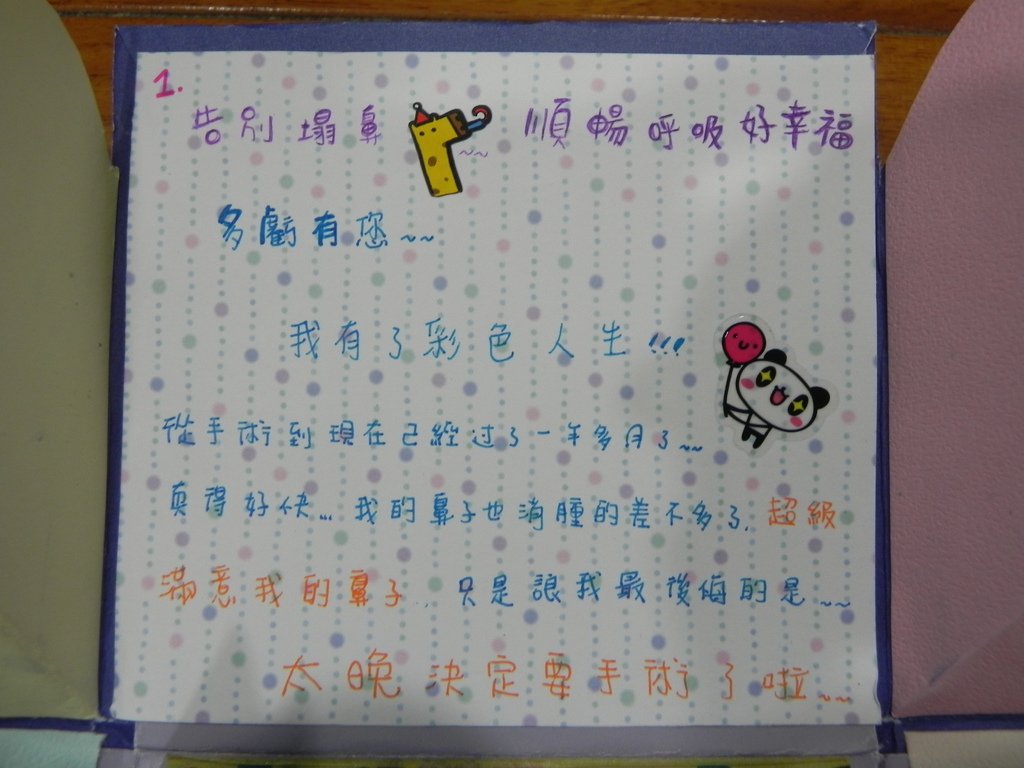 1.
告別塌鼻 順暢呼吸好幸福
多虧有您~~
我有了彩色人生!!!
從手術到現在已經过了一年多月了~~
真得好快... 我的鼻子也消腫的差不多了, 超級
滿意我的鼻子.. 只是讓我最後悔的是~~
太晚決定要手術了啦~~